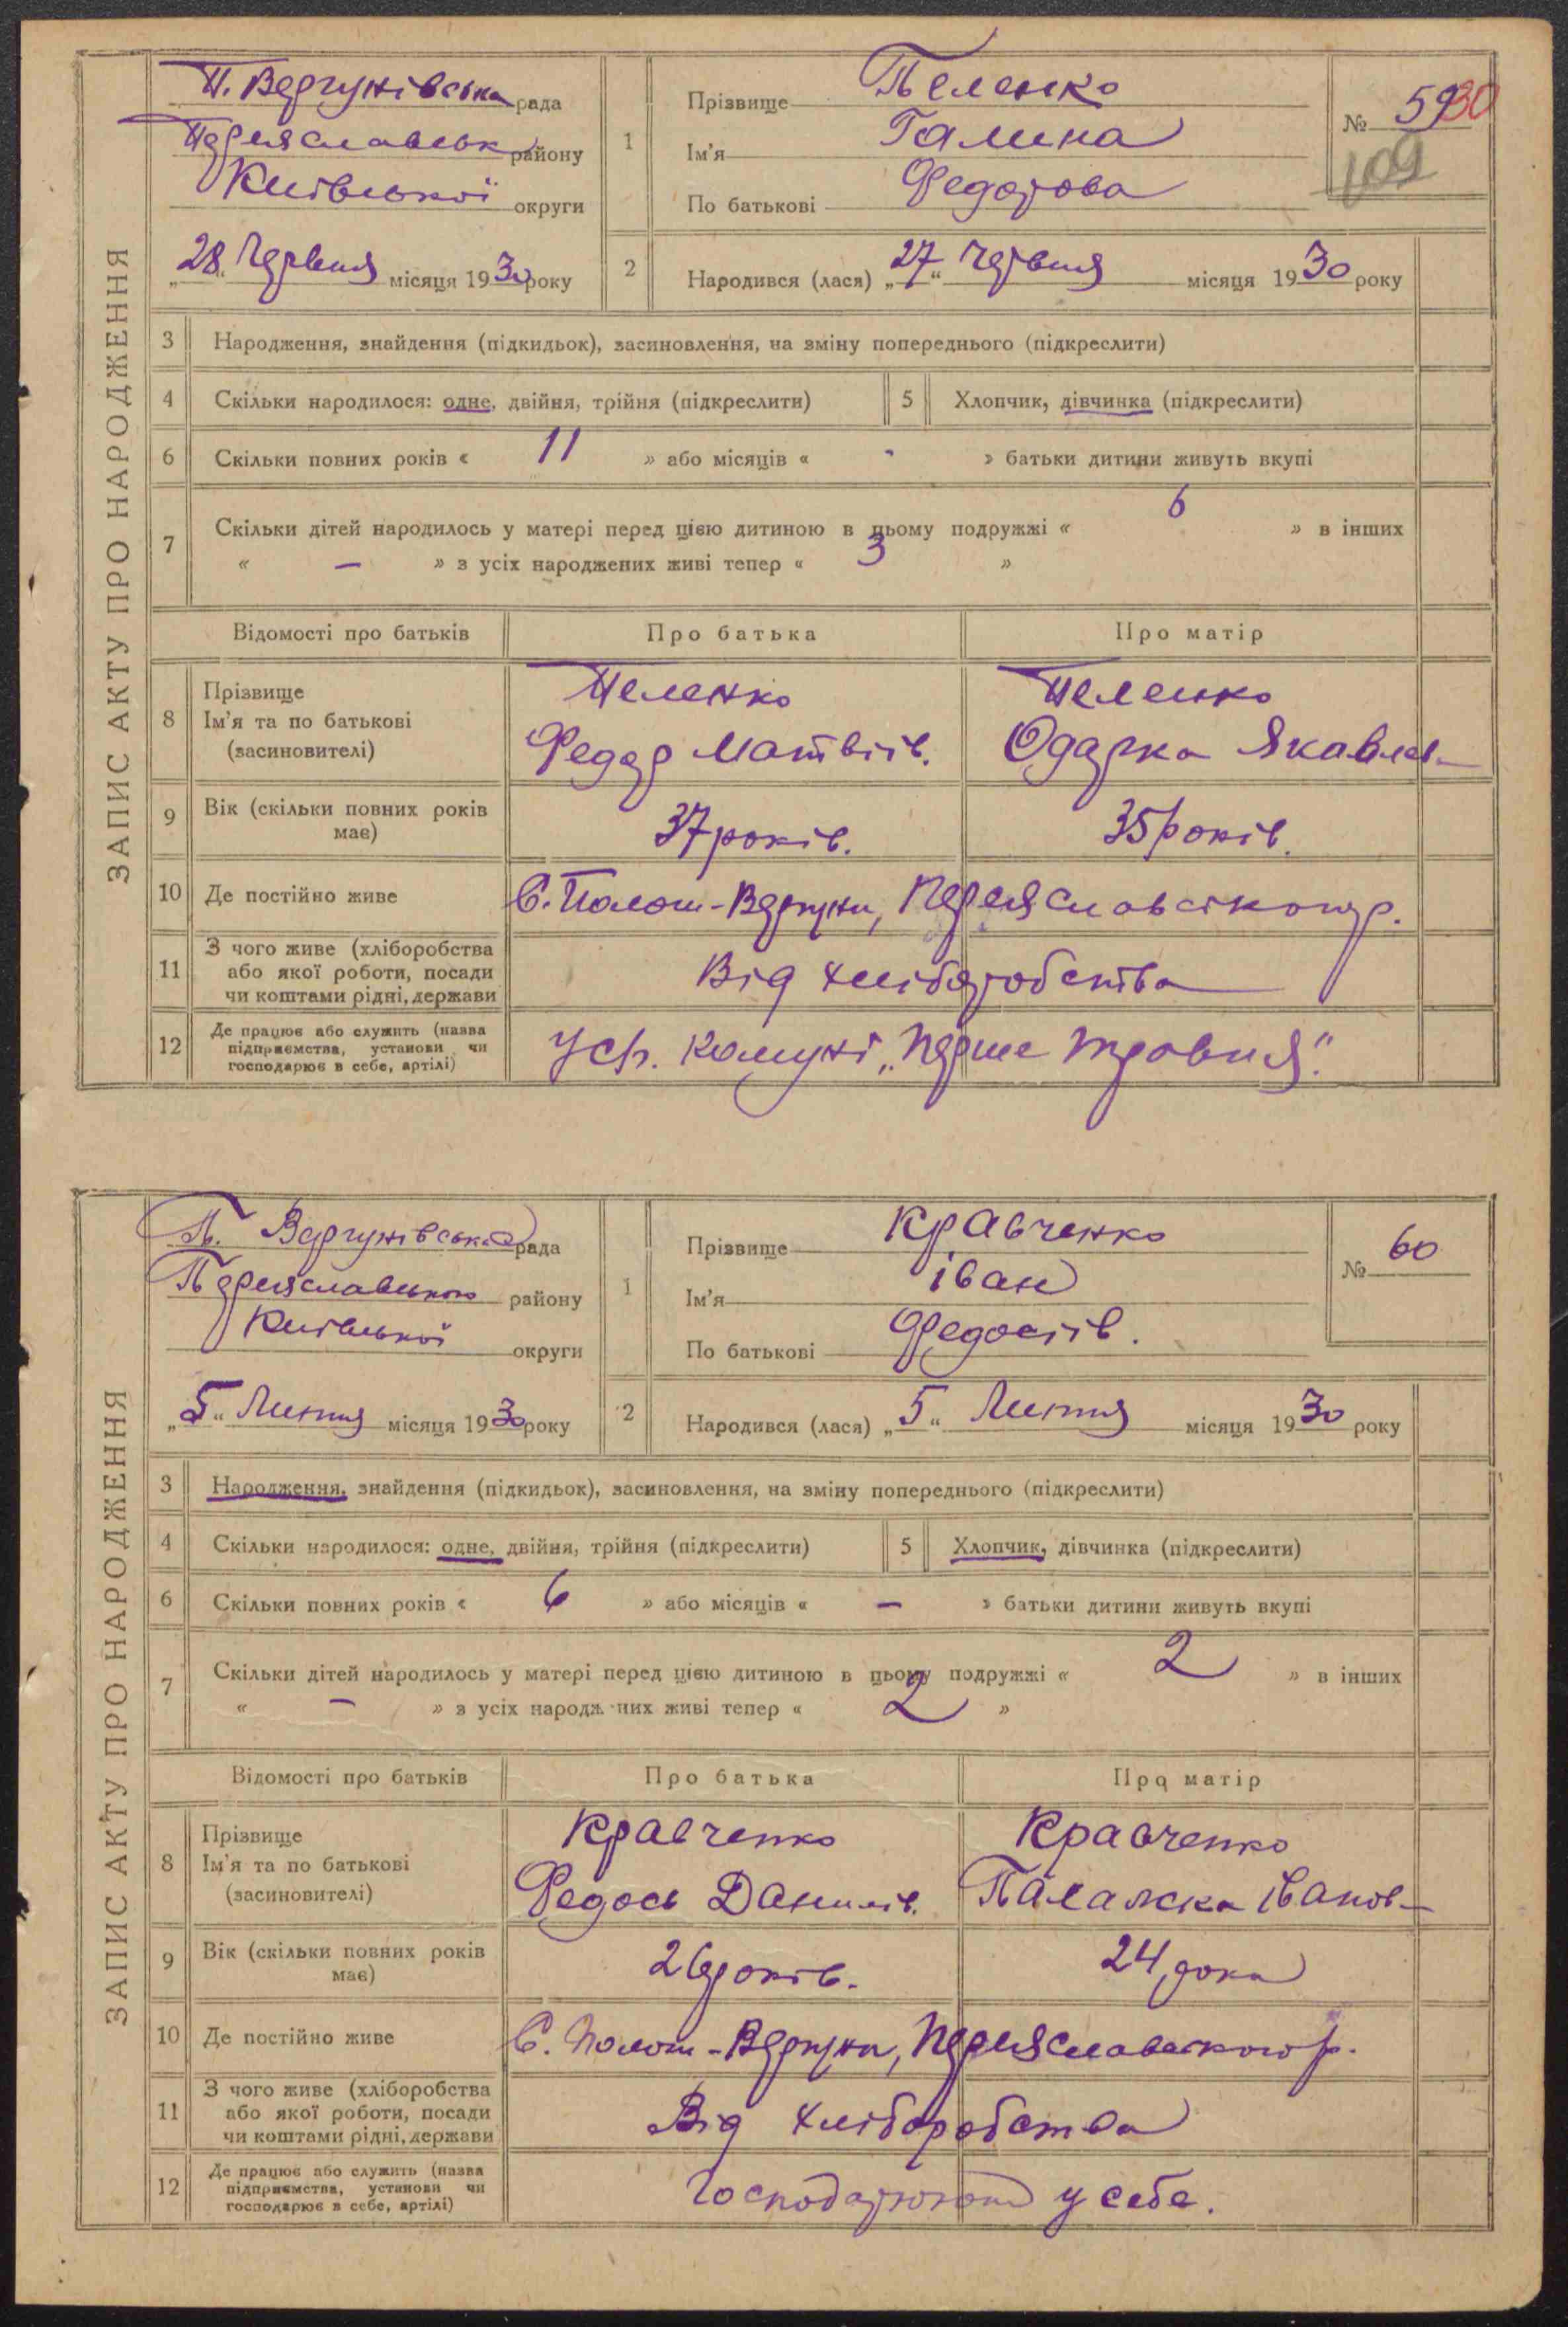 ЗАПИС АКТУ ПРО НАРОДЖЕННЯ
П. Вергунівська рада
Переяславськ району
Київської округи
„28“ Червня місяця 1930 року
1
Прізвище Пеленко
Ім'я Галина
По батькові Федорова
№ 59
30
109
2
Народився (лася) „27“ Червня місяця 1930 року
3 Народження, знайдення (підкидьок), засиновлення, на зміну попереднього (підкреслити)
4 Скільки народилося: одне, двійня, трійня (підкреслити) 5 Хлопчик, дівчинка (підкреслити)
6 Скільки повних років « 11 » або місяців « - » батьки дитини живуть вкупі
7 Скільки дітей народилось у матері перед цією дитиною в цьому подружжі « 6 » в інших
« — » з усіх народжених живі тепер « 3 »
Відомості про батьків Про батька Про матір
8 Прізвище
Ім'я та по батькові
(засиновителі)
Пеленко
Федор Матвіїв.
Пеленко
Одарка Яковлев-
9 Вік (скільки повних років
має)
37 років.
35 років.
10 Де постійно живе С. Полош-Вергуни, Переяславського р.
11 З чого живе (хліборобства
або якої роботи, посади
чи коштами рідні, держави
Від хліборобства
12 Де працює або служить (назва
підприємства, установи чи
господарює в себе, артілі)
комуні „Перше травня“.
ЗАПИС АКТУ ПРО НАРОДЖЕННЯ
П. Вергунівська рада
Переяславського району
Київської округи
„5“ Липня місяця 1930 року
1
Прізвище Кравченко
Ім'я Іван
По батькові Федосіїв.
№ 60
2
Народився (лася) „5“ Липня місяця 1930 року
3 Народження, знайдення (підкидьок), засиновлення, на зміну попереднього (підкреслити)
4 Скільки народилося: одне, двійня, трійня (підкреслити) 5 Хлопчик, дівчинка (підкреслити)
6 Скільки повних років « 6 » або місяців « — » батьки дитини живуть вкупі
7 Скільки дітей народилось у матері перед цією дитиною в цьому подружжі « 2 » в інших
« — » з усіх народж них живі тепер « 2 »
Відомості про батьків Про батька Про матір
8 Прізвище
Ім'я та по батькові
(засиновителі)
Кравченко
Федось Данилів.
Кравченко
Палажка Іванов-
9 Вік (скільки повних років
має)
26 років.
24 рока
10 Де постійно живе С. Полош-Вергуни, Переяславського р.
11 З чого живе (хліборобства
або якої роботи, посади
чи коштами рідні, держави
Від хліборобства
12 Де працює або служить (назва
підприємства, установи чи
господарює в себе, артілі)
Господарюють у себе.